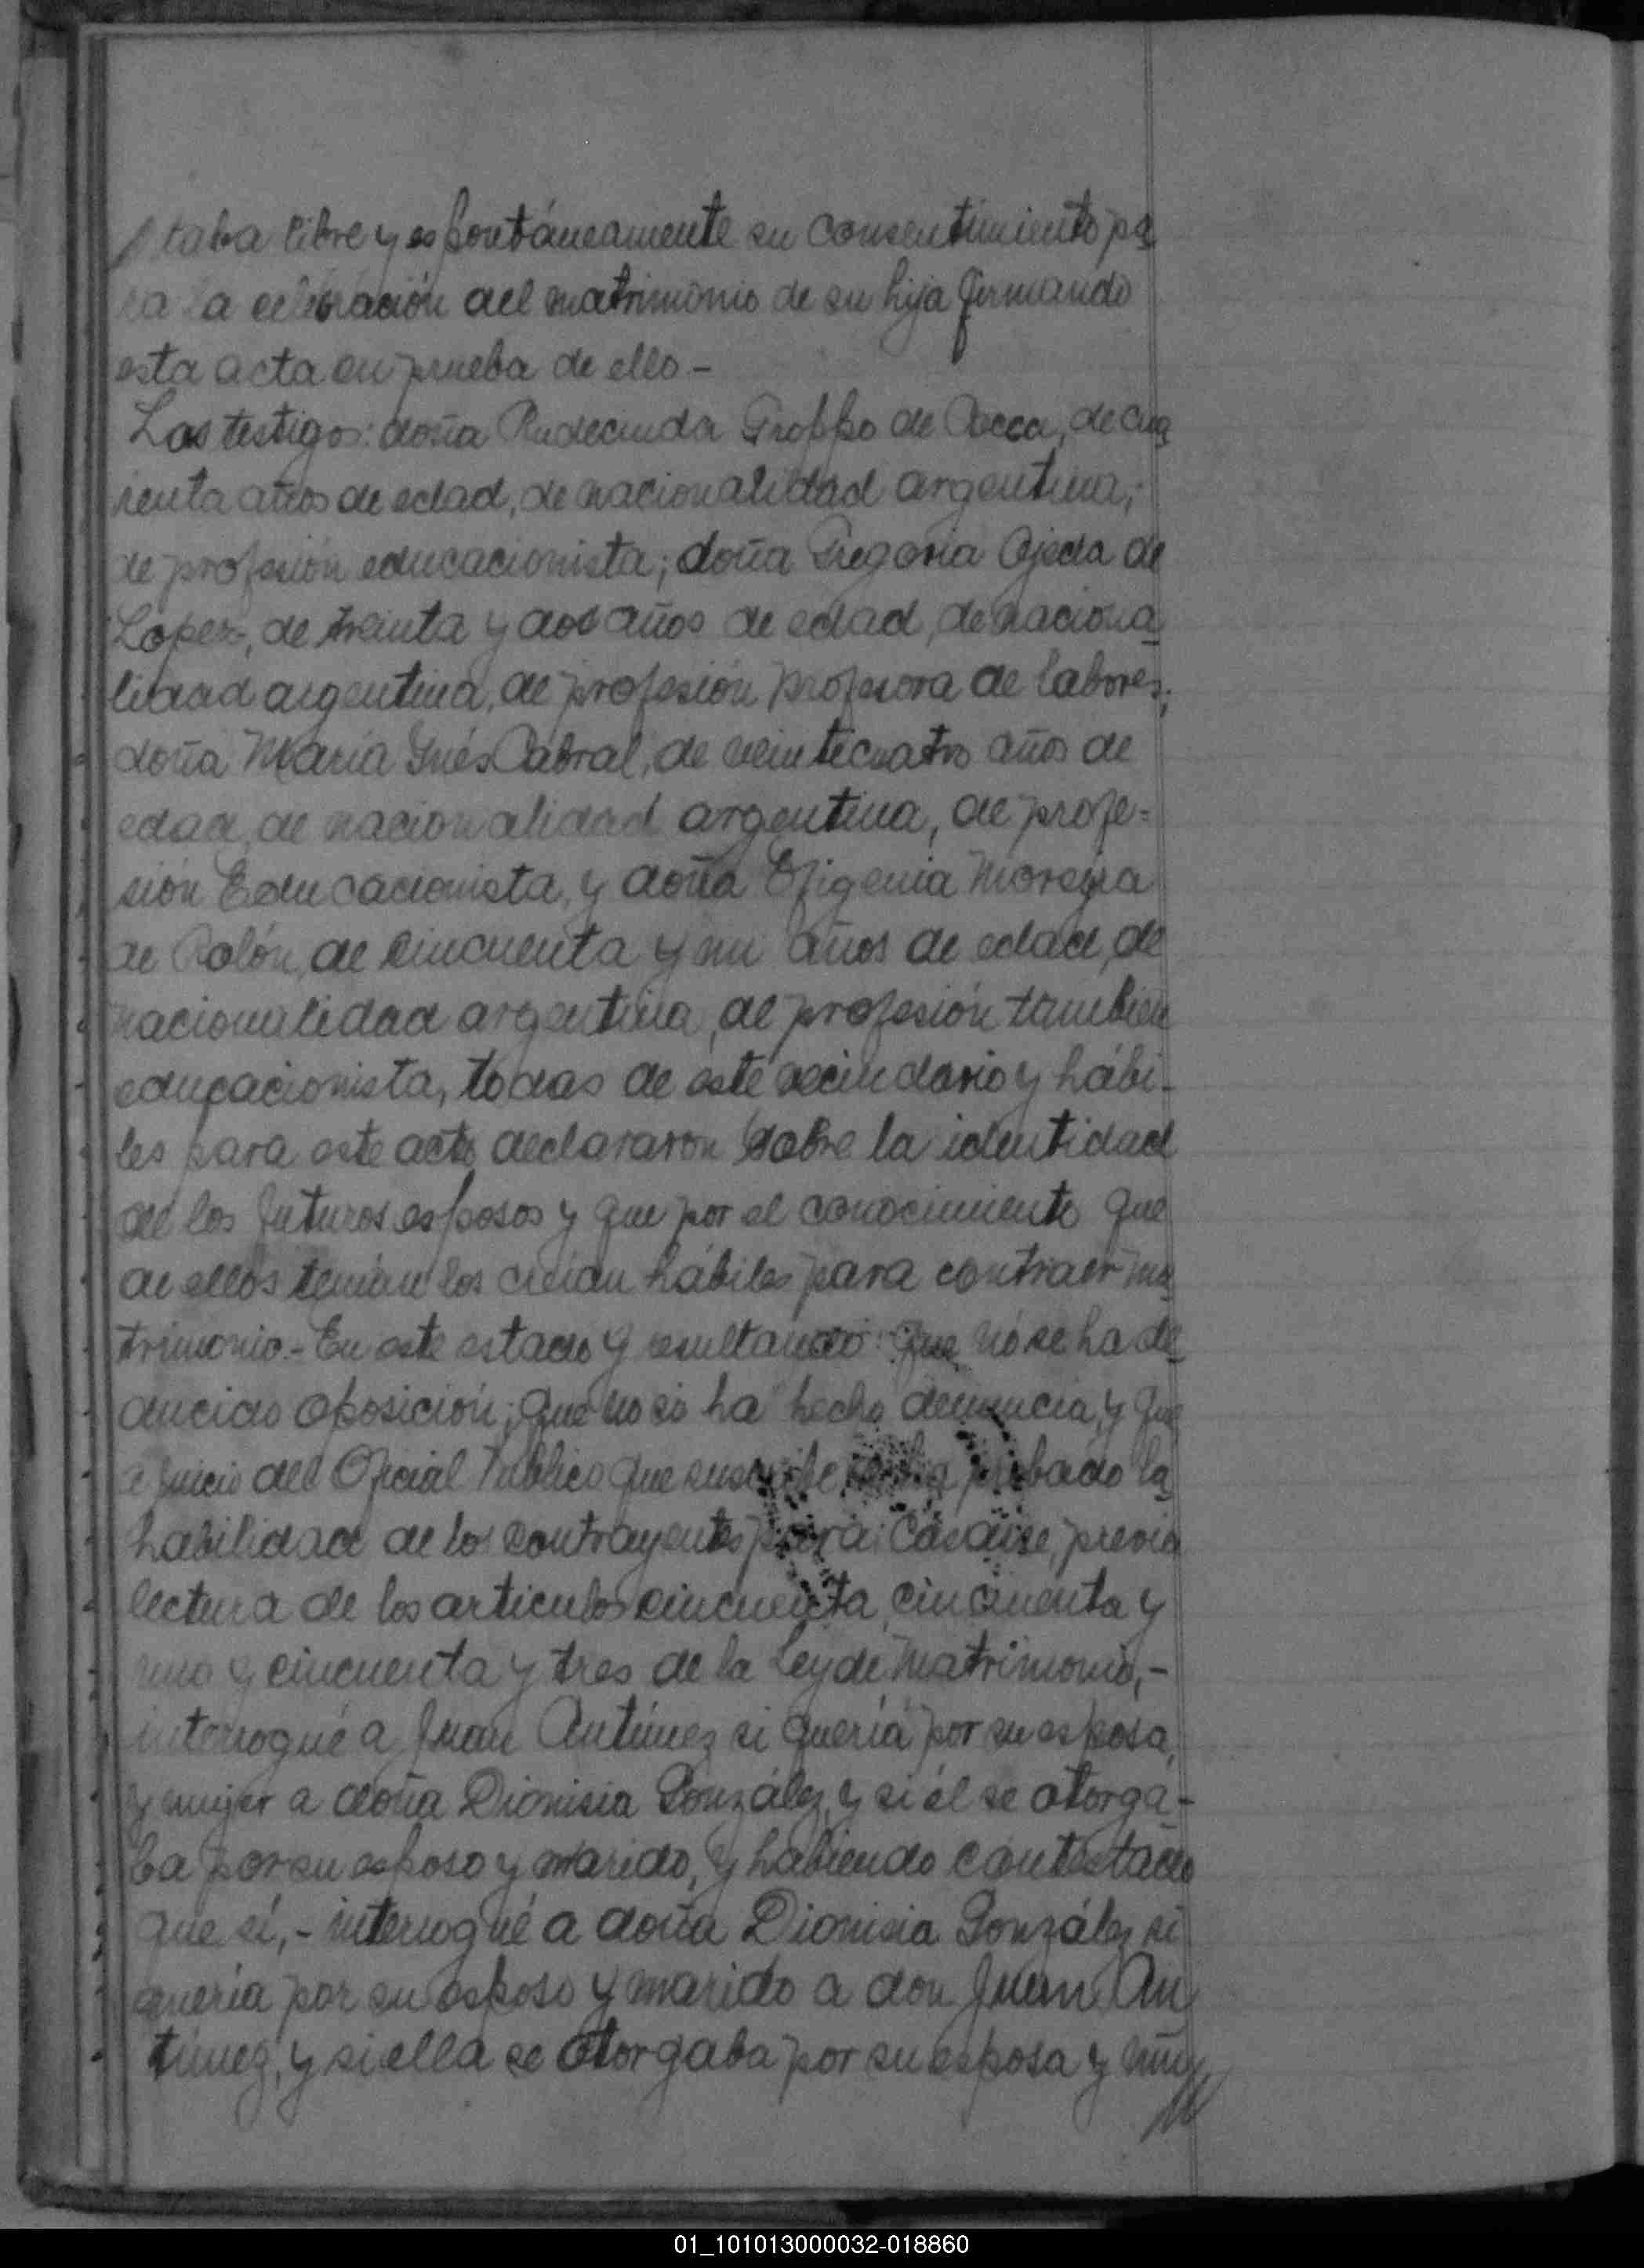 /taba libre y espontáneamente su consentimiento pa
ra la celebración del matrimonio de su hija firmando
esta acta en prueba de ello -
Las testigos: doña Rudecinda Groppo de Rocca, de cua
renta años de edad, de nacionalidad argentina,
de profesión educacionista; doña Gregoria Ojeda de
Lopez, de treinta y dos años de edad, de naciona
lidad argentina, de profesión profesora de labores;
doña María Inés Cabral, de veinticuatro años de
edad, de nacionalidad argentina, de profe=
sión Educacionista, y doña Efigenia Moreyra
de Rolón, de cincuenta y un años de edad, de
nacionalidad argentina, de profesión tambien
educacionista, todas de este vecindario y hábi-
les para este acto declararon sobre la identidad
de los futuros esposos y que por el conocimiento que
de ellos tenían los creían hábiles para contraer ma
trimonio.- En este estado y resultando: que nó se ha de
ducido oposición; que no se ha hecho denuncia, y que
a juicio del Oficial Público que suscribe se ha probado la
habilidad de los contrayentes para casarse, previa
lectura de los articulos cincuenta, cincuenta y
uno y cincuenta y tres de la Ley de Matrimonio,-
interrogué a Juan Antúnez si quería por su esposa
y mujer a doña Dionisia González, y si él se otorga-
ba por su esposo y marido, y habiendo contestado
que sí,- interrogué a doña Dionisia González si
quería por su esposo y marido a don Juan An
túnez, y si ella se otorgaba por su esposa y muj//
01_101013000032-018860